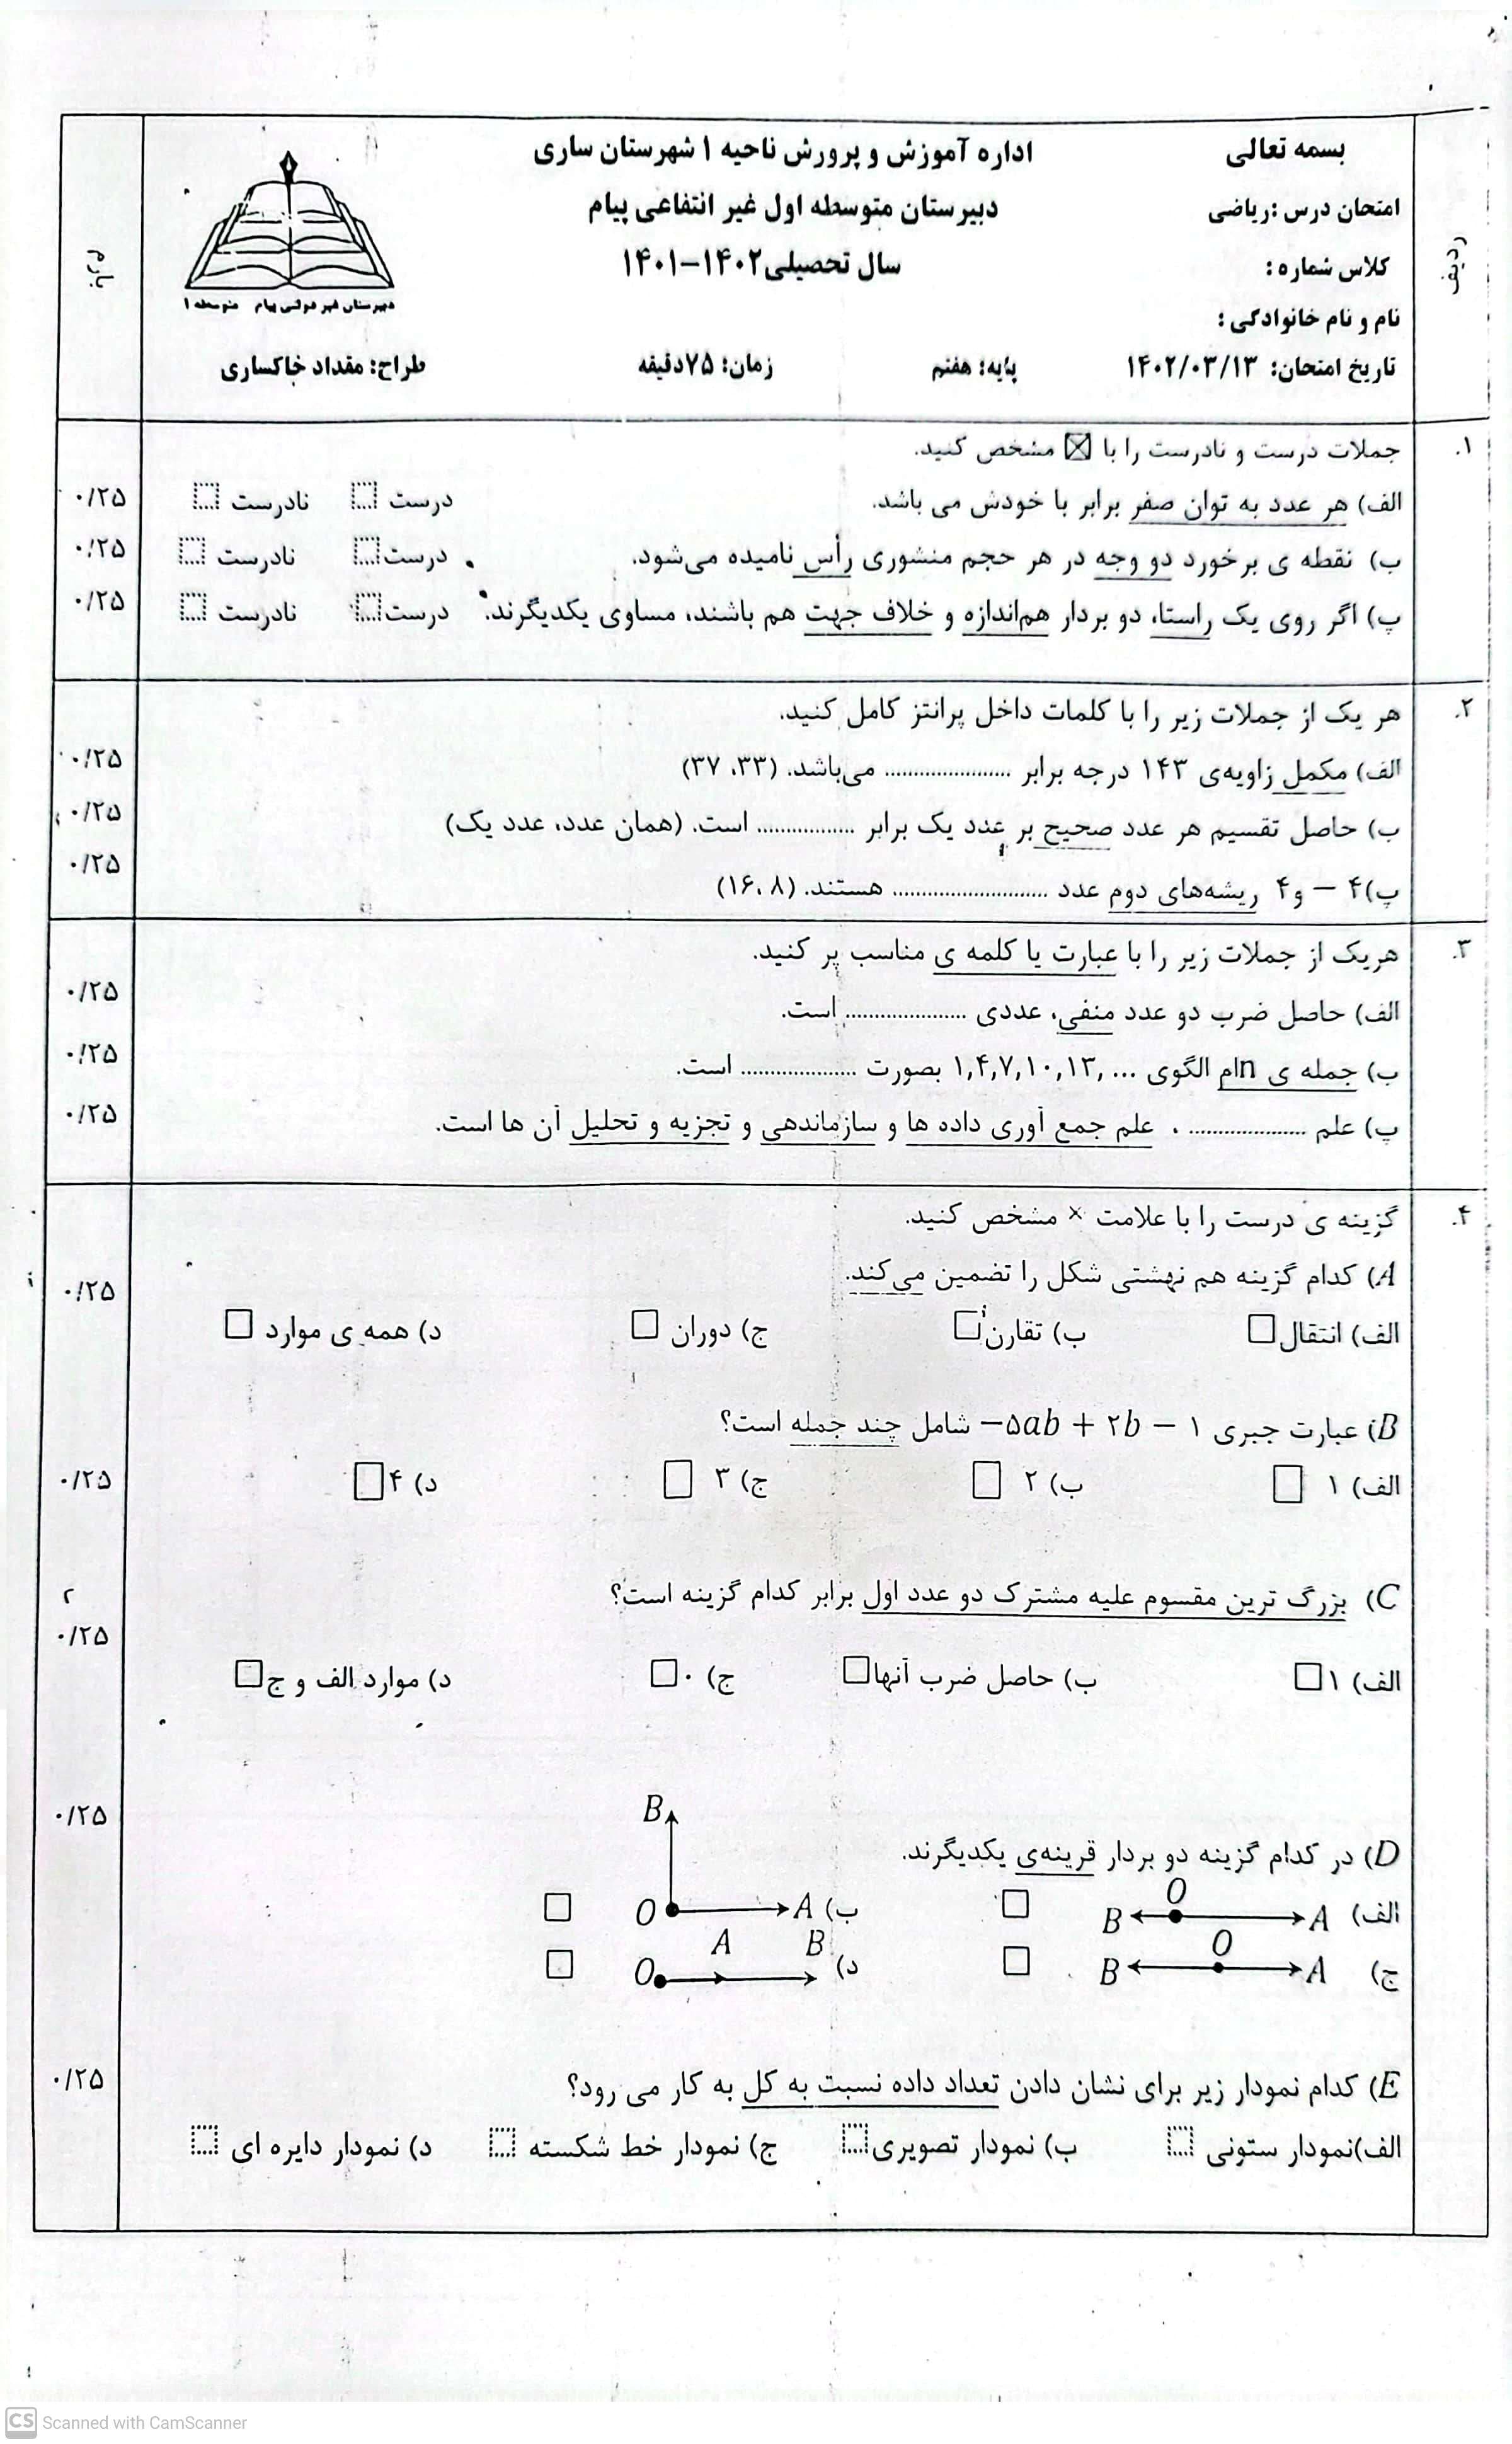 بسمه تعالی
اداره آموزش و پرورش ناحیه ۱ شهرستان ساری
امتحان درس :ریاضی
دبیرستان متوسطه اول غیر انتفاعی پیام
کلاس شماره :
سال تحصیلی۱۴۰۲-۱۴۰۱
نام و نام خانوادگی :
تاریخ امتحان: ۱۴۰۲/۰۳/۱۳
پایه: هفتم
زمان: ۷۵دقیقه
طراح: مقداد خاکساری
دبیرستان غیر دولتی پیام متوسطه ۱
ردیف
بارم
۱. جملات درست و نادرست را با ☒ مشخص کنید.
الف) هر عدد به توان صفر برابر با خودش می باشد. درست نادرست ۰/۲۵
ب) نقطه ی برخورد دو وجه در هر حجم منشوری رأس نامیده می‌شود. درست نادرست ۰/۲۵
پ) اگر روی یک راستا، دو بردار هم‌اندازه و خلاف جهت هم باشند، مساوی یکدیگرند. درست نادرست ۰/۲۵
۲. هر یک از جملات زیر را با کلمات داخل پرانتز کامل کنید.
الف) مکمل زاویه‌ی ۱۴۳ درجه برابر ...................... می‌باشد. (۳۳، ۳۷) ۰/۲۵
ب) حاصل تقسیم هر عدد صحیح بر عدد یک برابر ................. است. (همان عدد، عدد یک) ۰/۲۵
پ)۴ − و۴ ریشه‌های دوم عدد ........................... هستند. (۸ ،۱۶) ۰/۲۵
۳. هریک از جملات زیر را با عبارت یا کلمه ی مناسب پر کنید.
الف) حاصل ضرب دو عدد منفی، عددی ..................... است. ۰/۲۵
ب) جمله ی nام الگوی ... ,۱,۴,۷,۱۰,۱۳ بصورت .................... است. ۰/۲۵
پ) علم .................... ، علم جمع آوری داده ها و سازماندهی و تجزیه و تحلیل آن ها است. ۰/۲۵
۴. گزینه ی درست را با علامت × مشخص کنید.
A) کدام گزینه هم نهشتی شکل را تضمین می‌کند. ۰/۲۵
الف) انتقال ب) تقارن ج) دوران د) همه ی موارد
B) عبارت جبری −۵ab + ۲b − ۱ شامل چند جمله است؟
الف) ۱ ب) ۲ ج) ۳ د) ۴ ۰/۲۵
C) بزرگ ترین مقسوم علیه مشترک دو عدد اول برابر کدام گزینه است؟
۰/۲۵
الف) ۱ ب) حاصل ضرب آنها ج) ۰ د) موارد الف و ج
۰/۲۵
D) در کدام گزینه دو بردار قرینه‌ی یکدیگرند.
الف) B O A ب) B O A
ج) B O A د) O A B
E) کدام نمودار زیر برای نشان دادن تعداد داده نسبت به کل به کار می رود؟ ۰/۲۵
الف)نمودار ستونی ب) نمودار تصویری ج) نمودار خط شکسته د) نمودار دایره ای
CS Scanned with CamScanner